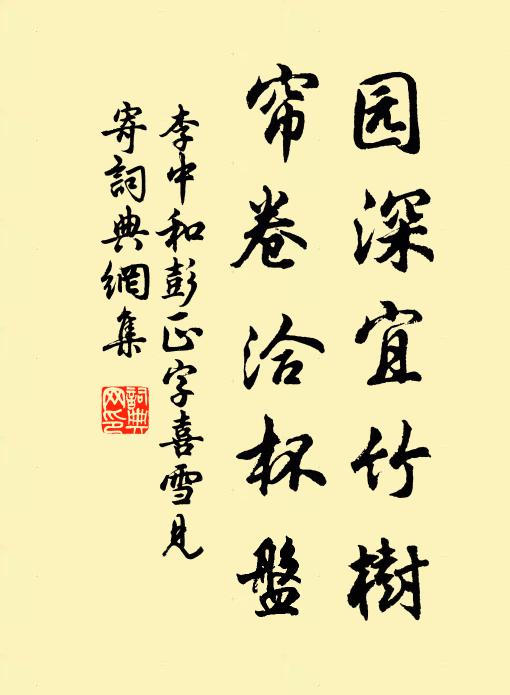 园深宜竹樹
帘卷洽杯盤
李中和彭正字喜雪見
寄詞典網集
詞典网印